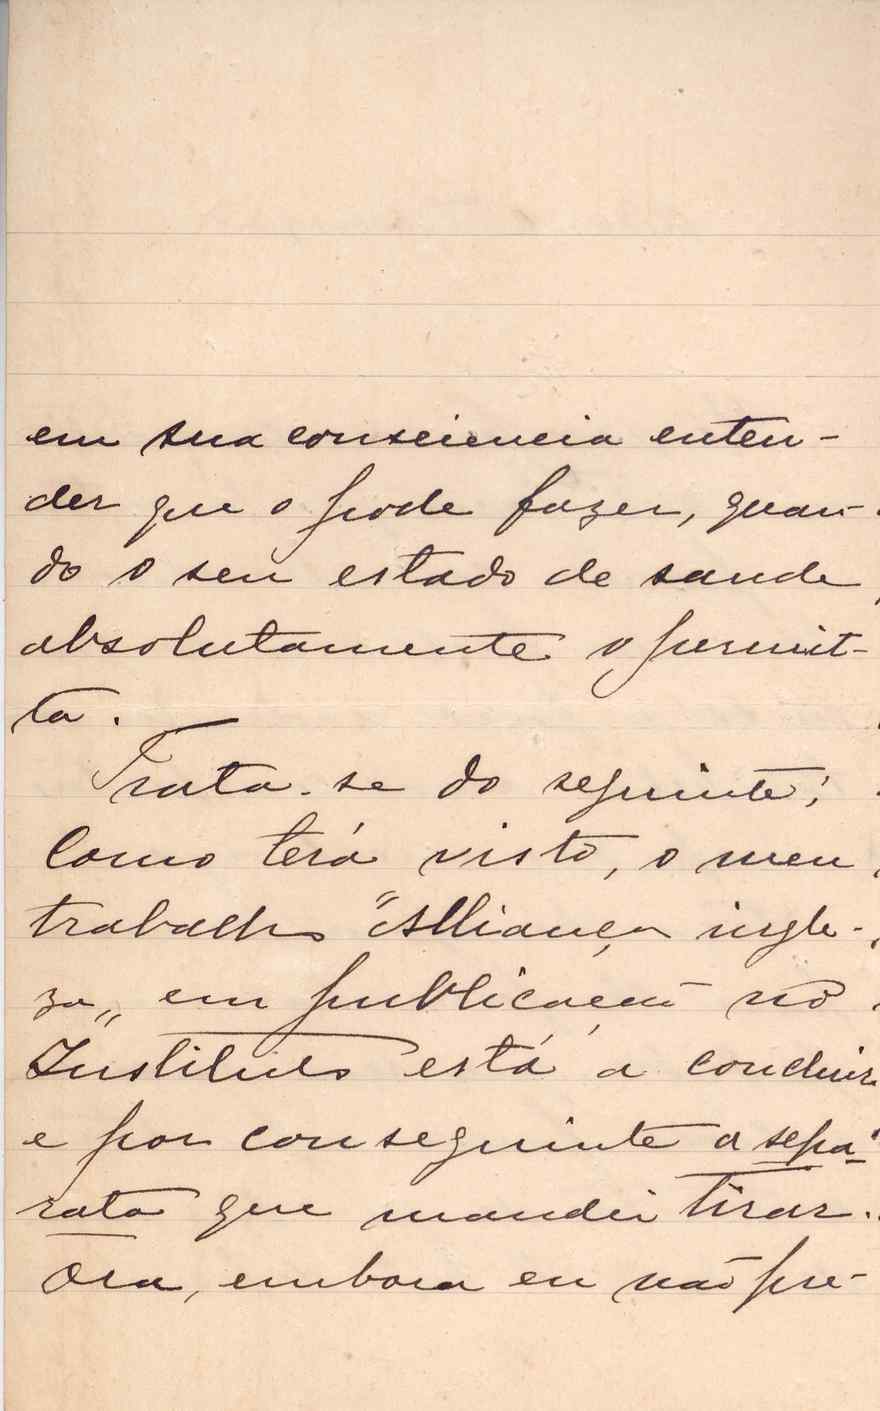 em sua consciencia enten-
der que o pode fazer, quan-
do o seu estado de saude
absolutamente o permit-
ta.
Trata-se do seguinte:
Como terá visto, o meu
trabalho "Alliança ingle-
za„ em publicação no
Instituto está a concluir
e por conseguinte a sepa-
rata que mandei tirar.
Ora, embora eu não pre-